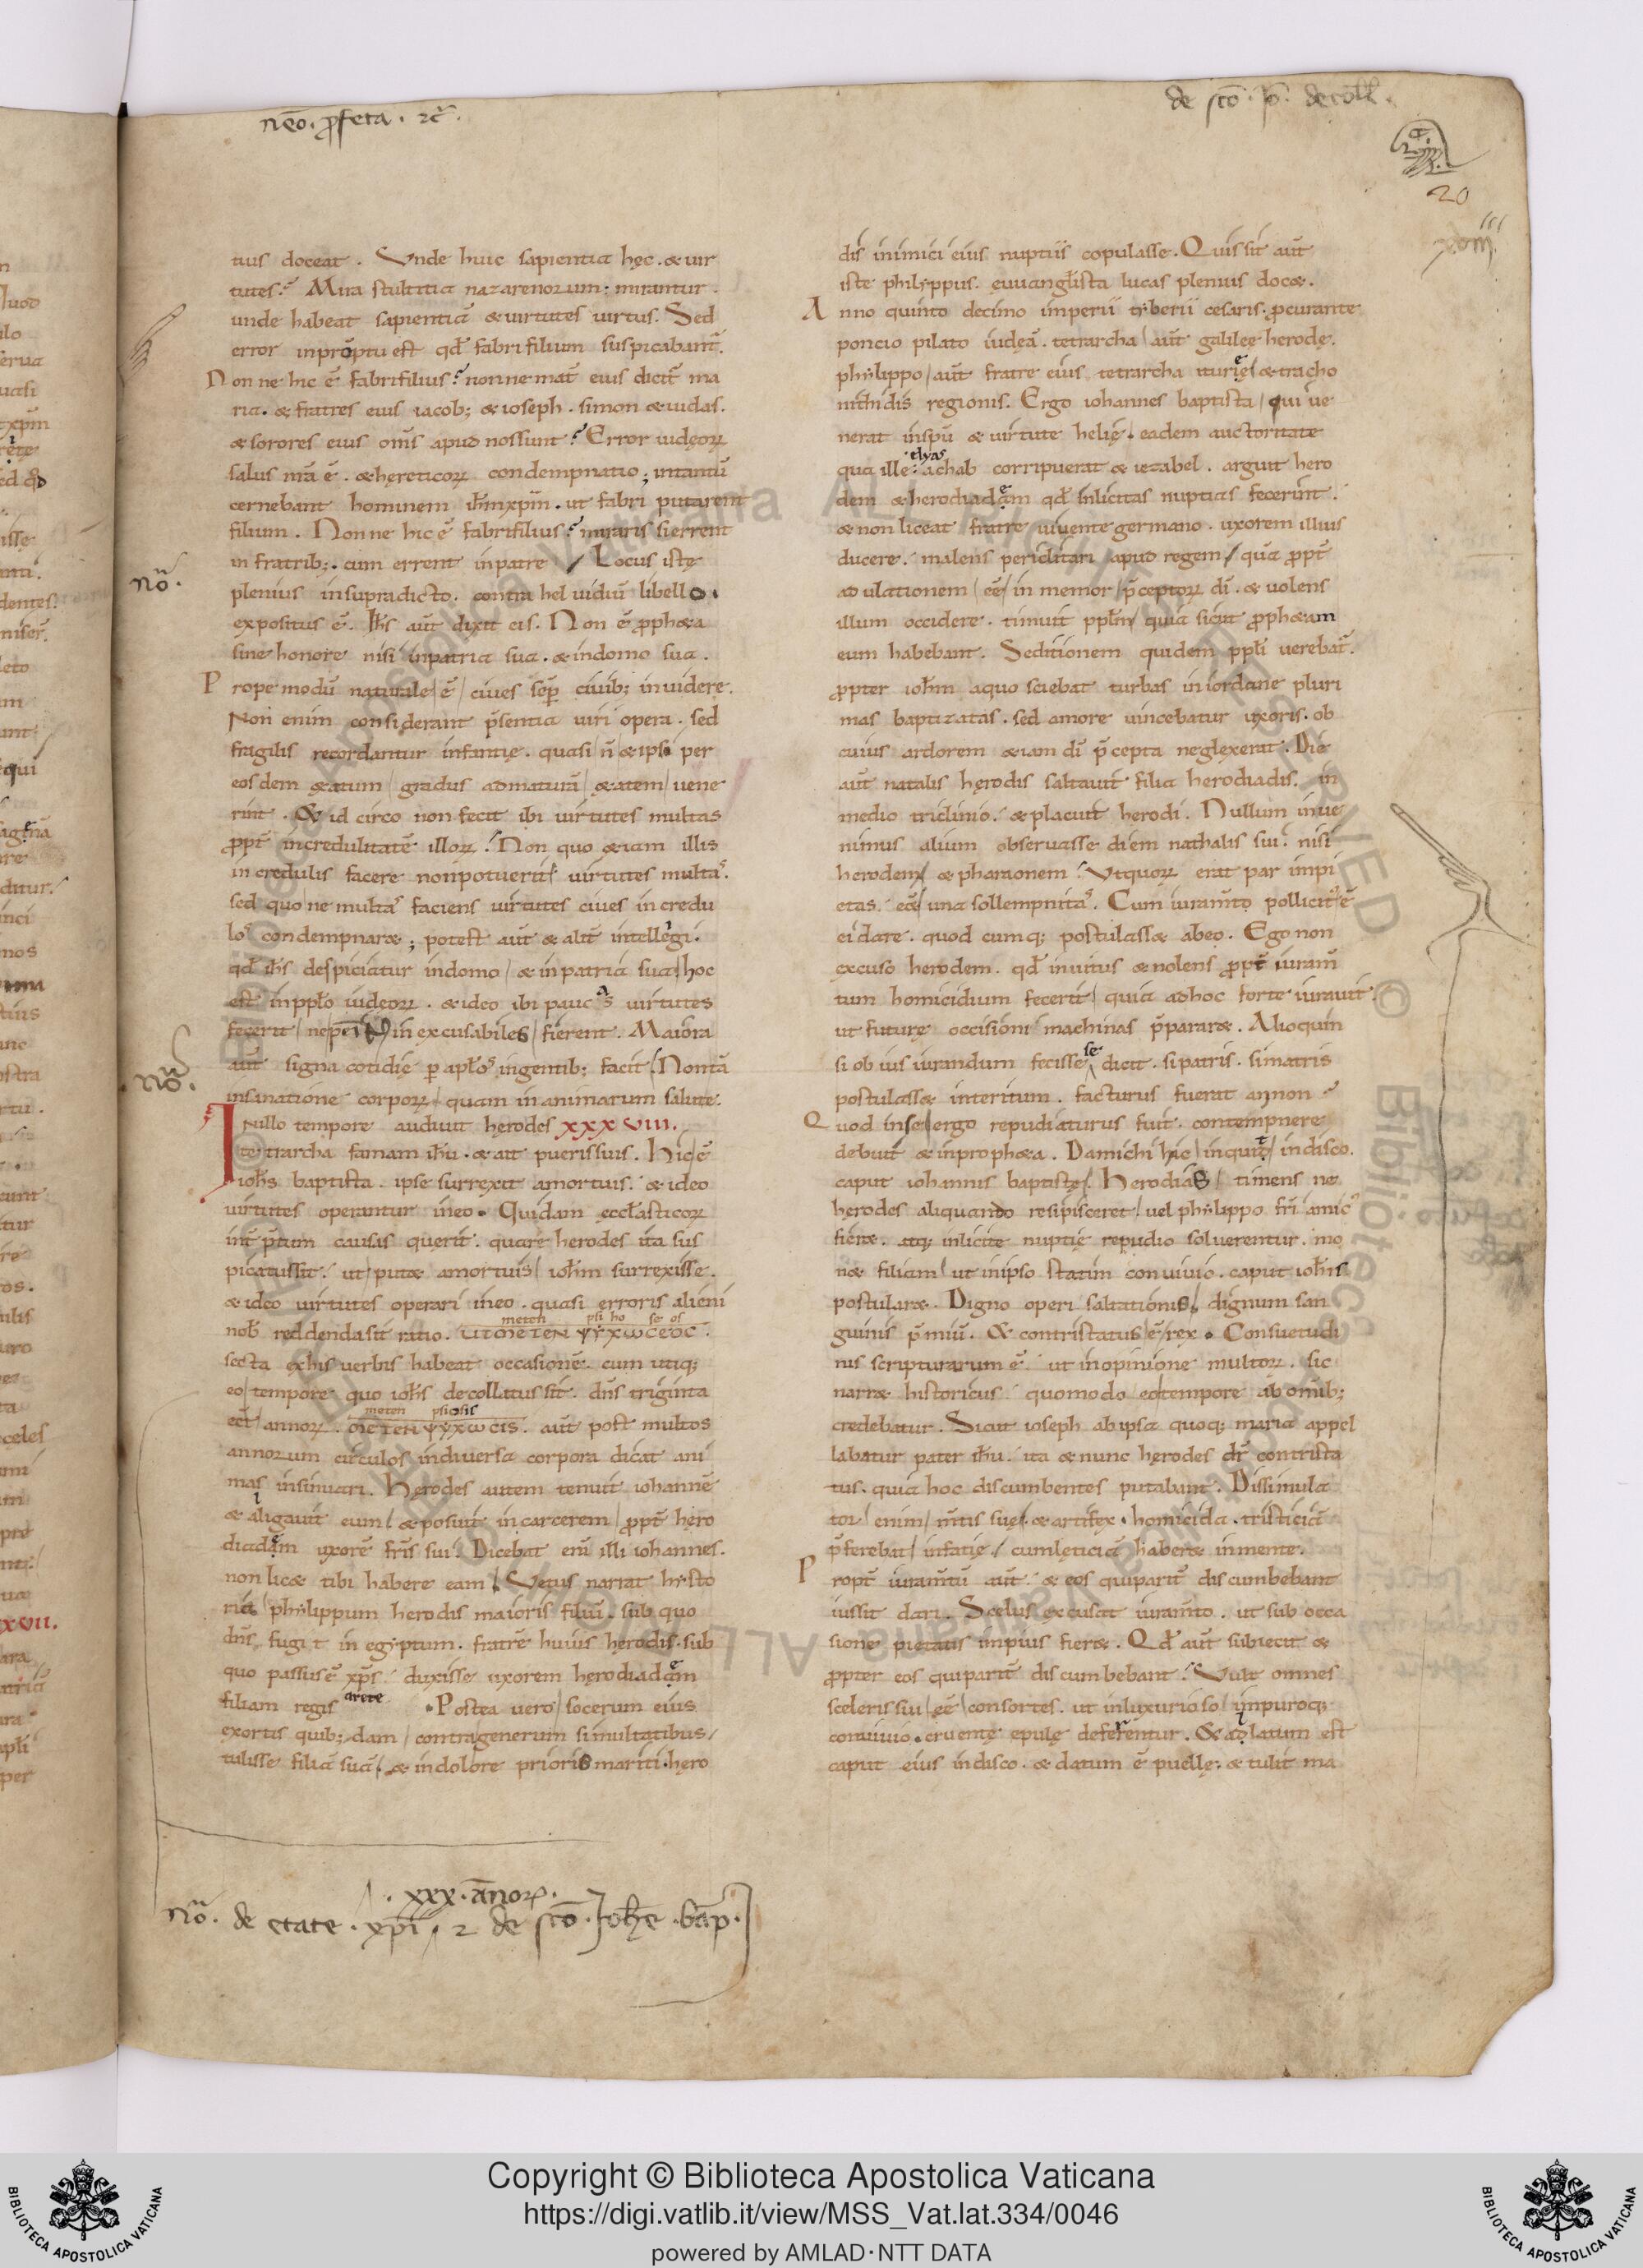 neo. ꝓfeta. ⁊c̃.
de sc̃o. Jo. decoll̃.
20
tius doceat. Vnde huic sapientia hęc. & uir
tutes? Mira stultitia nazarenorum: mirantur.
unde habeat sapientiā & uirtutes uirtus. Sed
error inpromptu est qđ fabri filium suspicabant̃.
Non ne hic ē fabri filius? nonne mat̃ eius dicit̃ ma
ria. & fratres eius iacob; & ioseph. simon & iudas.
& sorores eius om̄s apud nos sunt? Error iudęoꝝ
salus nr̄a ē. & hereticoꝝ condempnatio; intantū
cernebant hominem ihm xp̄m. ut fabri putarent
filium. Non ne hic ē fabri filius? miraris si errent
in fratrib;. cum errent in patre / Locus iste
plenius in supradicto. contra heluidiū libello.
expositus ē. Ihs aut̃ dixit eis. Non ē ꝓpheta
sine honore nisi inpatria sua. & in domo sua.
Prope modū naturale ē ciues sep̄ ciuib; inuidere.
Non enim considerant p̄sentia uiri opera. sed
fragilis recordantur infantię. quasi n̄ & ipsi per
eosdem ætatum gradus ad maturā ætatem uene
rint. Et id circo non fecit ibi uirtutes multas
ꝓpt̃ incredulitatē illoꝝ. Non quo etiam illis
incredulis facere non potuerit uirtutes multas.
sed quo ne multas faciens uirtutes ciues incredu
los condempnaret; potest aut̃ & alit̃ intellegi.
qđ ihs despiciatur in domo & in patria sua hoc
est in pplo iudęoꝝ. & ideo ibi paucas uirtutes
fecerit ne penitus inexcusabiles fierent. Maiora
aut̃ signa cotidie p aplos in gentib; facit. Non tā
in sanatione corpoꝝ quam in animarum salute.
In illo tempore audiuit herodes XXXVIII.
tetrarcha famam ihu. & ait pueris suis. Hic ē
iohs baptista. ipse surrexit a mortuis. & ideo
uirtutes operantur in eo. Quidam eccl̃asticoꝝ
int̃p̄tum causas querit. quare herodes ita sus
picatus sit. ut putet a mortuis iohm surrexisse.
& ideo uirtutes operari in eo. quasi erroris alieni
meten psi ho se os
nob reddenda sit ratio. UT METEN ΨΥΧωCEOC.
secta ex his uerbis habeat occasionē. cum utiq;
eo tempore quo iohs decollatus sit. dn̄s triginta
meten psicosis
eet annoꝝ. METEN ΨΥΧωCIS. aut̃ post multos
annorum circulos in diuersa corpora dicat ani
mas insinuari. Herodes autem tenuit iohannē
& aligauit eum & posuit in carcerem ꝓpt̃ hero
diadem uxorē fr̄is sui. Dicebat eni illi iohannes.
non licet tibi habere eam. Vetus narrat histo
ria philippum herodis maioris filiū. sub quo
dn̄s fugit in egyptum. fratrē huius herodis. sub
quo passus ē xp̄s duxisse uxorem herodiadem
filiam regis arete. Postea uero socerum eius
exortis quib;dam contra generum simultatibus
tulisse filiā suā. & in dolore prioris mariti. hero
dis inimici eius nuptiis copulasse. Quis sit aut̃
iste philippus. euuanglista lucas plenius docet.
Anno quinto decimo imperii tyberii cesaris. ꝓcurante
poncio pilato iudeā. tetrarcha aut̃ galilee herode.
philippo aut̃ fratre eius tetrarcha iturię & tracho
nithidis regionis. Ergo iohannes baptista qui ue
nerat in spū & uirtute helię. eadem auctoritate
elyas
qua ille achab corripuerat & iezabel. arguit hero
dem & herodiadem qđ inlicitas nuptias fecerint.
& non liceat fratre uiuente germano. uxorem illius
ducere. malens periclitari apud regem quā ꝓpt̃
adulationem eē in memor p̄ceptoꝝ di. & uolens
illum occidere. timuit pplm quia sicut ꝓphetam
eum habebant. Seditionem quidem ppli uerebat̃.
ꝓpter iohm a quo sciebat turbas in iordane pluri
mas baptizatas. sed amore uincebatur uxoris. ob
cuius ardorem etiam di p̄cepta neglexerat. Die
aut̃ natalis herodis saltauit filia herodiadis. in
medio triclinio. & placuit herodi. Nullum inue
nimus alium obseruasse diem nathalis sui. nisi
herodem & pharaonem. Vt quoꝝ erat par impi
etas. eet una sollempnitas. Cum iuram̄to pollicitus ē
ei dare. quod cumq; postulasset ab eo. Ego non
excuso herodem. qđ inuitus & nolens ꝓpt̃ iuram̄
tum homicidium fecerit quia ad hoc forte iurauit
ut futurę occisioni machinas p̄pararet. Alioquin
si ob ius iurandum fecisse se dicit. si patris. si matris
postulasset interitum. facturus fuerat an non?
Quod in se ergo repudiaturus fuit. contempnere
debuit & in propheta. Da michi hic inquit in disco.
caput iohannis baptistę. Herodias timens ne
herodes aliquando resipisceret uel philippo fr̄i amicus
fieret. atq; inlicite nuptie repudio soluerentur. mo
net filiam ut in ipso statim conuiuio. caput iohis
postularet. Digno operi saltationis dignum san
guinis p̄miū. Et contristatus ē rex. Consuetudi
nis scripturarum ē ut in opinione multoꝝ. sic
narret historicus quomodo eo tempore ab omib;
credebatur. Sicut ioseph ab ipsa quoq; maria appel
labatur pater ihu. ita & nunc herodes dr̄ contrista
tus. quia hoc discumbentes putabant. Dissimula
tor enim m̄tis suę. & artifex. homicida. tristiciā
p̄ferebat in facie cum leticia haberet in mente.
Propt̃ iuram̄tū aut̃. & eos qui parit̃ discumbebant
iussit dari. Scelus excusat iuram̄to. ut sub occa
sione pietatis impius fieret. Qđ aut̃ subiecit &
ꝓpter eos qui parit̃ discumbebant. Vult omnes
sceleris sui eē consortes. ut in luxurioso inpuroq;
conuiuio. cruente epule deferrentur. Et adlatum est
caput eius in disco. & datum ē puellę. & tulit ma
nō.
nō.
.xxx. ānoꝝ.
nō. de etate. xp̄i. ⁊ de sc̃o. Johe. bap̄.
Copyright © Biblioteca Apostolica Vaticana
https://digi.vatlib.it/view/MSS_Vat.lat.334/0046
powered by AMLAD·NTT DATA
BIBLIOTECA APOSTOLICA VATICANA
BIBLIOTECA APOSTOLICA VATICANA